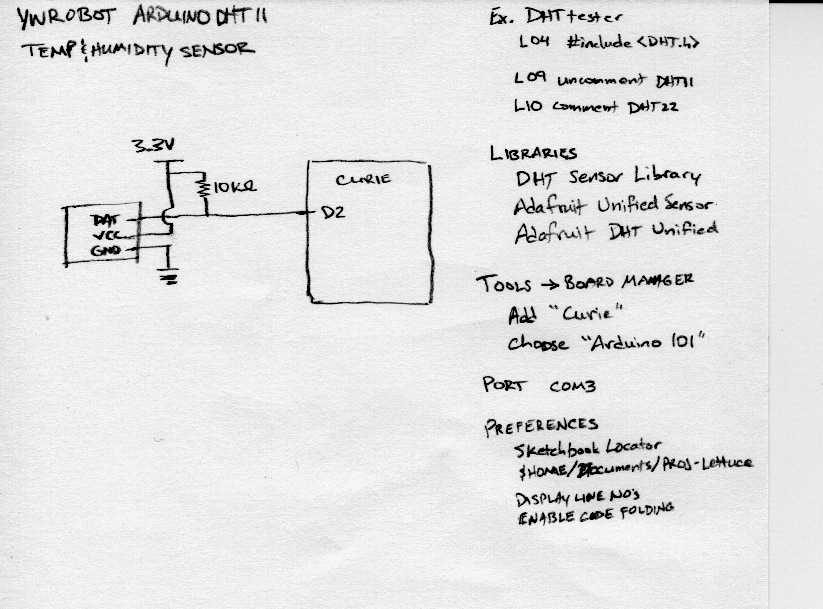 YWROBOT ARDUINO DHT11
TEMP & HUMIDITY SENSOR
3.3V
10KΩ
CURIE
DAT
VCC
GND
D2
Ex. DHTtester
L04 #include <DHT.h>
L09 uncomment DHT11
L10 comment DHT22
LIBRARIES
DHT Sensor Library
Adafruit Unified Sensor
Adafruit DHT Unified
TOOLS → BOARD MANAGER
Add "Curie"
Choose "Arduino 101"
PORT COM3
PREFERENCES
Sketchbook Locator
$HOME/Documents/PROJ-Lettuce
DISPLAY LINE NO'S
ENABLE CODE FOLDING